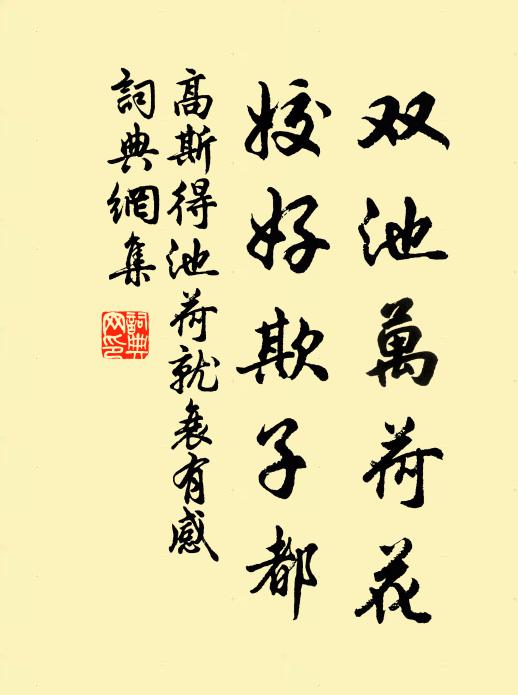 双池萬荷花
姣好欺子都
高斯得池荷就衰有感
詞典網集
詞典
网印